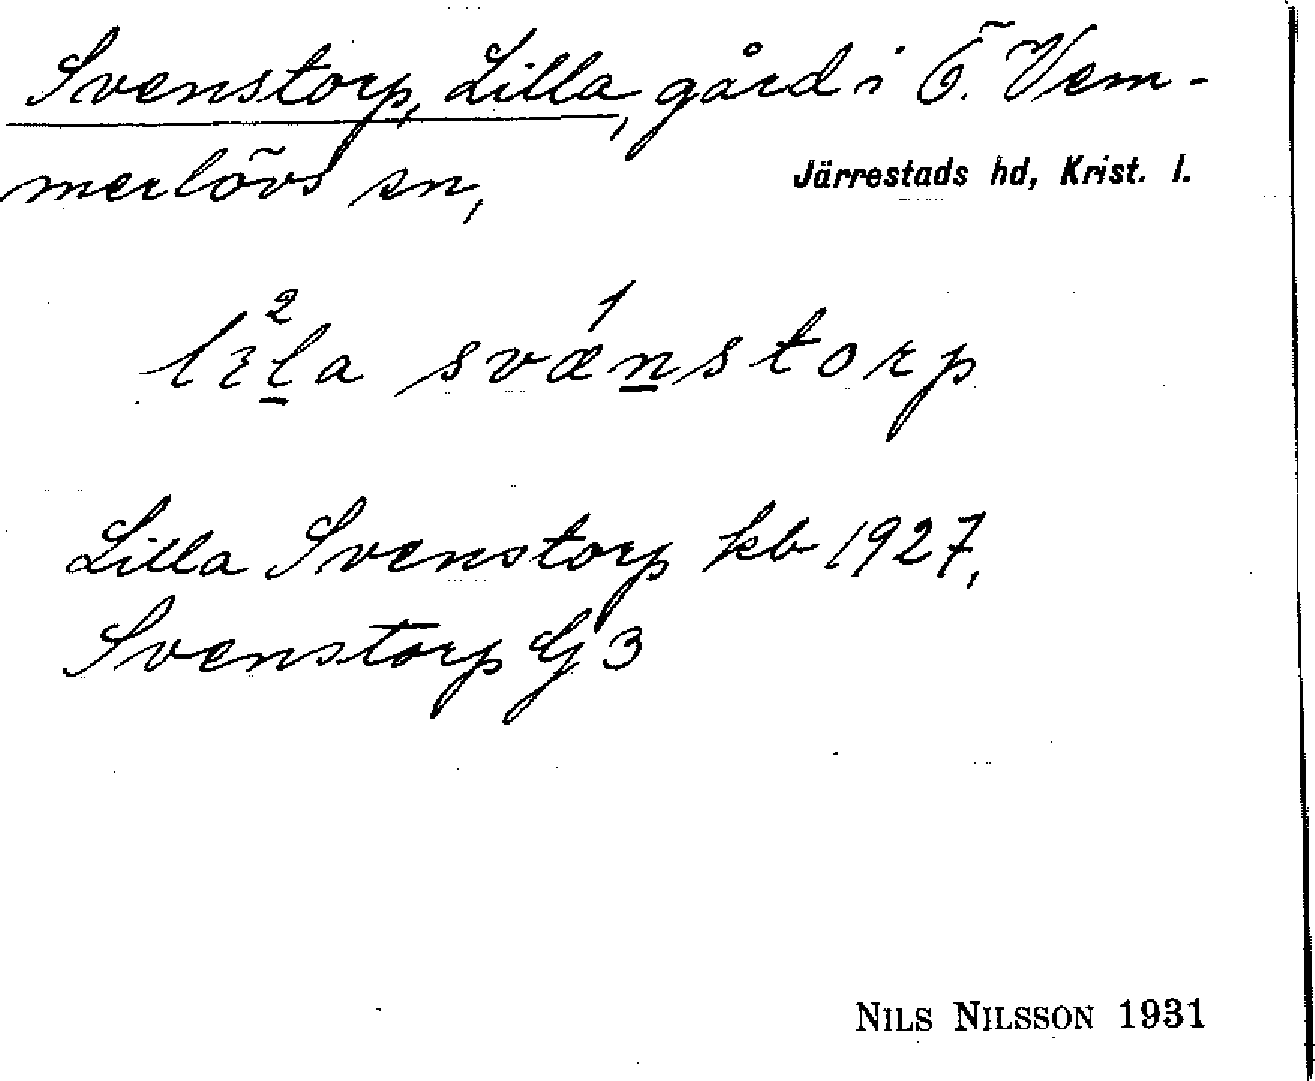 Svenstorp, Lilla, gård i Ö. Vem-
merlövs sn,
Järrestads hd, Krist. l.
lila svænstorp
Lilla Svenstorp kb 1927,
Svenstorp G 3
NILS NILSSON 1931